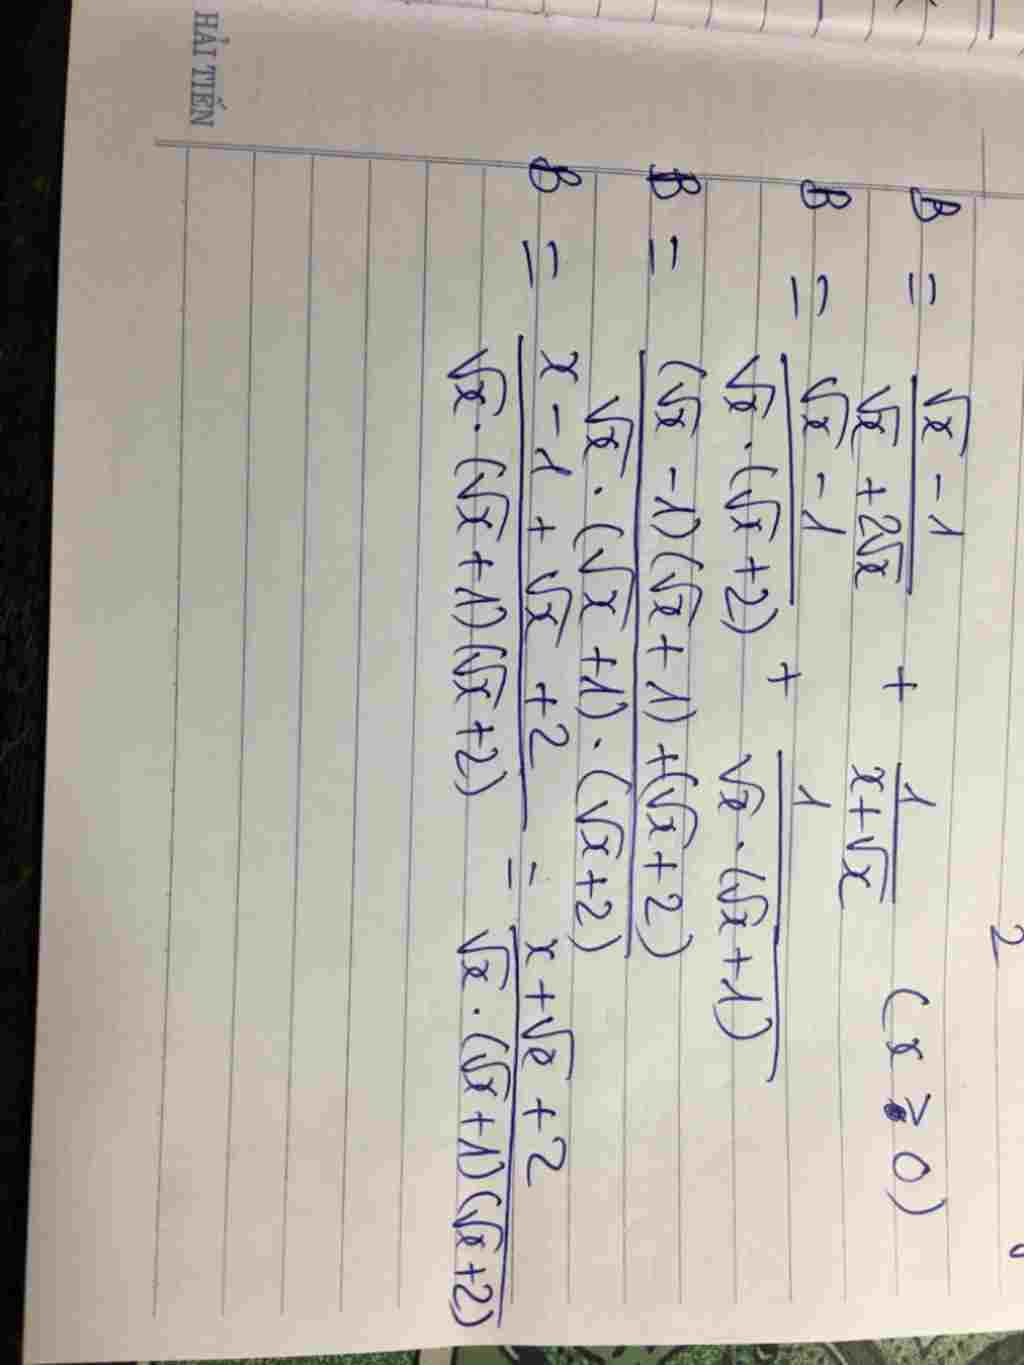 HẢI TIẾN
2
B = (√x - 1)/(√x + 2√x) + 1/(x+√x) (x ≥ 0)
B = (√x - 1)/(√x . (√x + 2)) + 1/(√x . (√x + 1))
B = ((√x - 1)(√x + 1) + (√x + 2))/(√x . (√x + 1) . (√x + 2))
B = (x - 1 + √x + 2)/(√x . (√x + 1)(√x + 2)) = (x + √x + 2)/(√x . (√x + 1)(√x + 2))